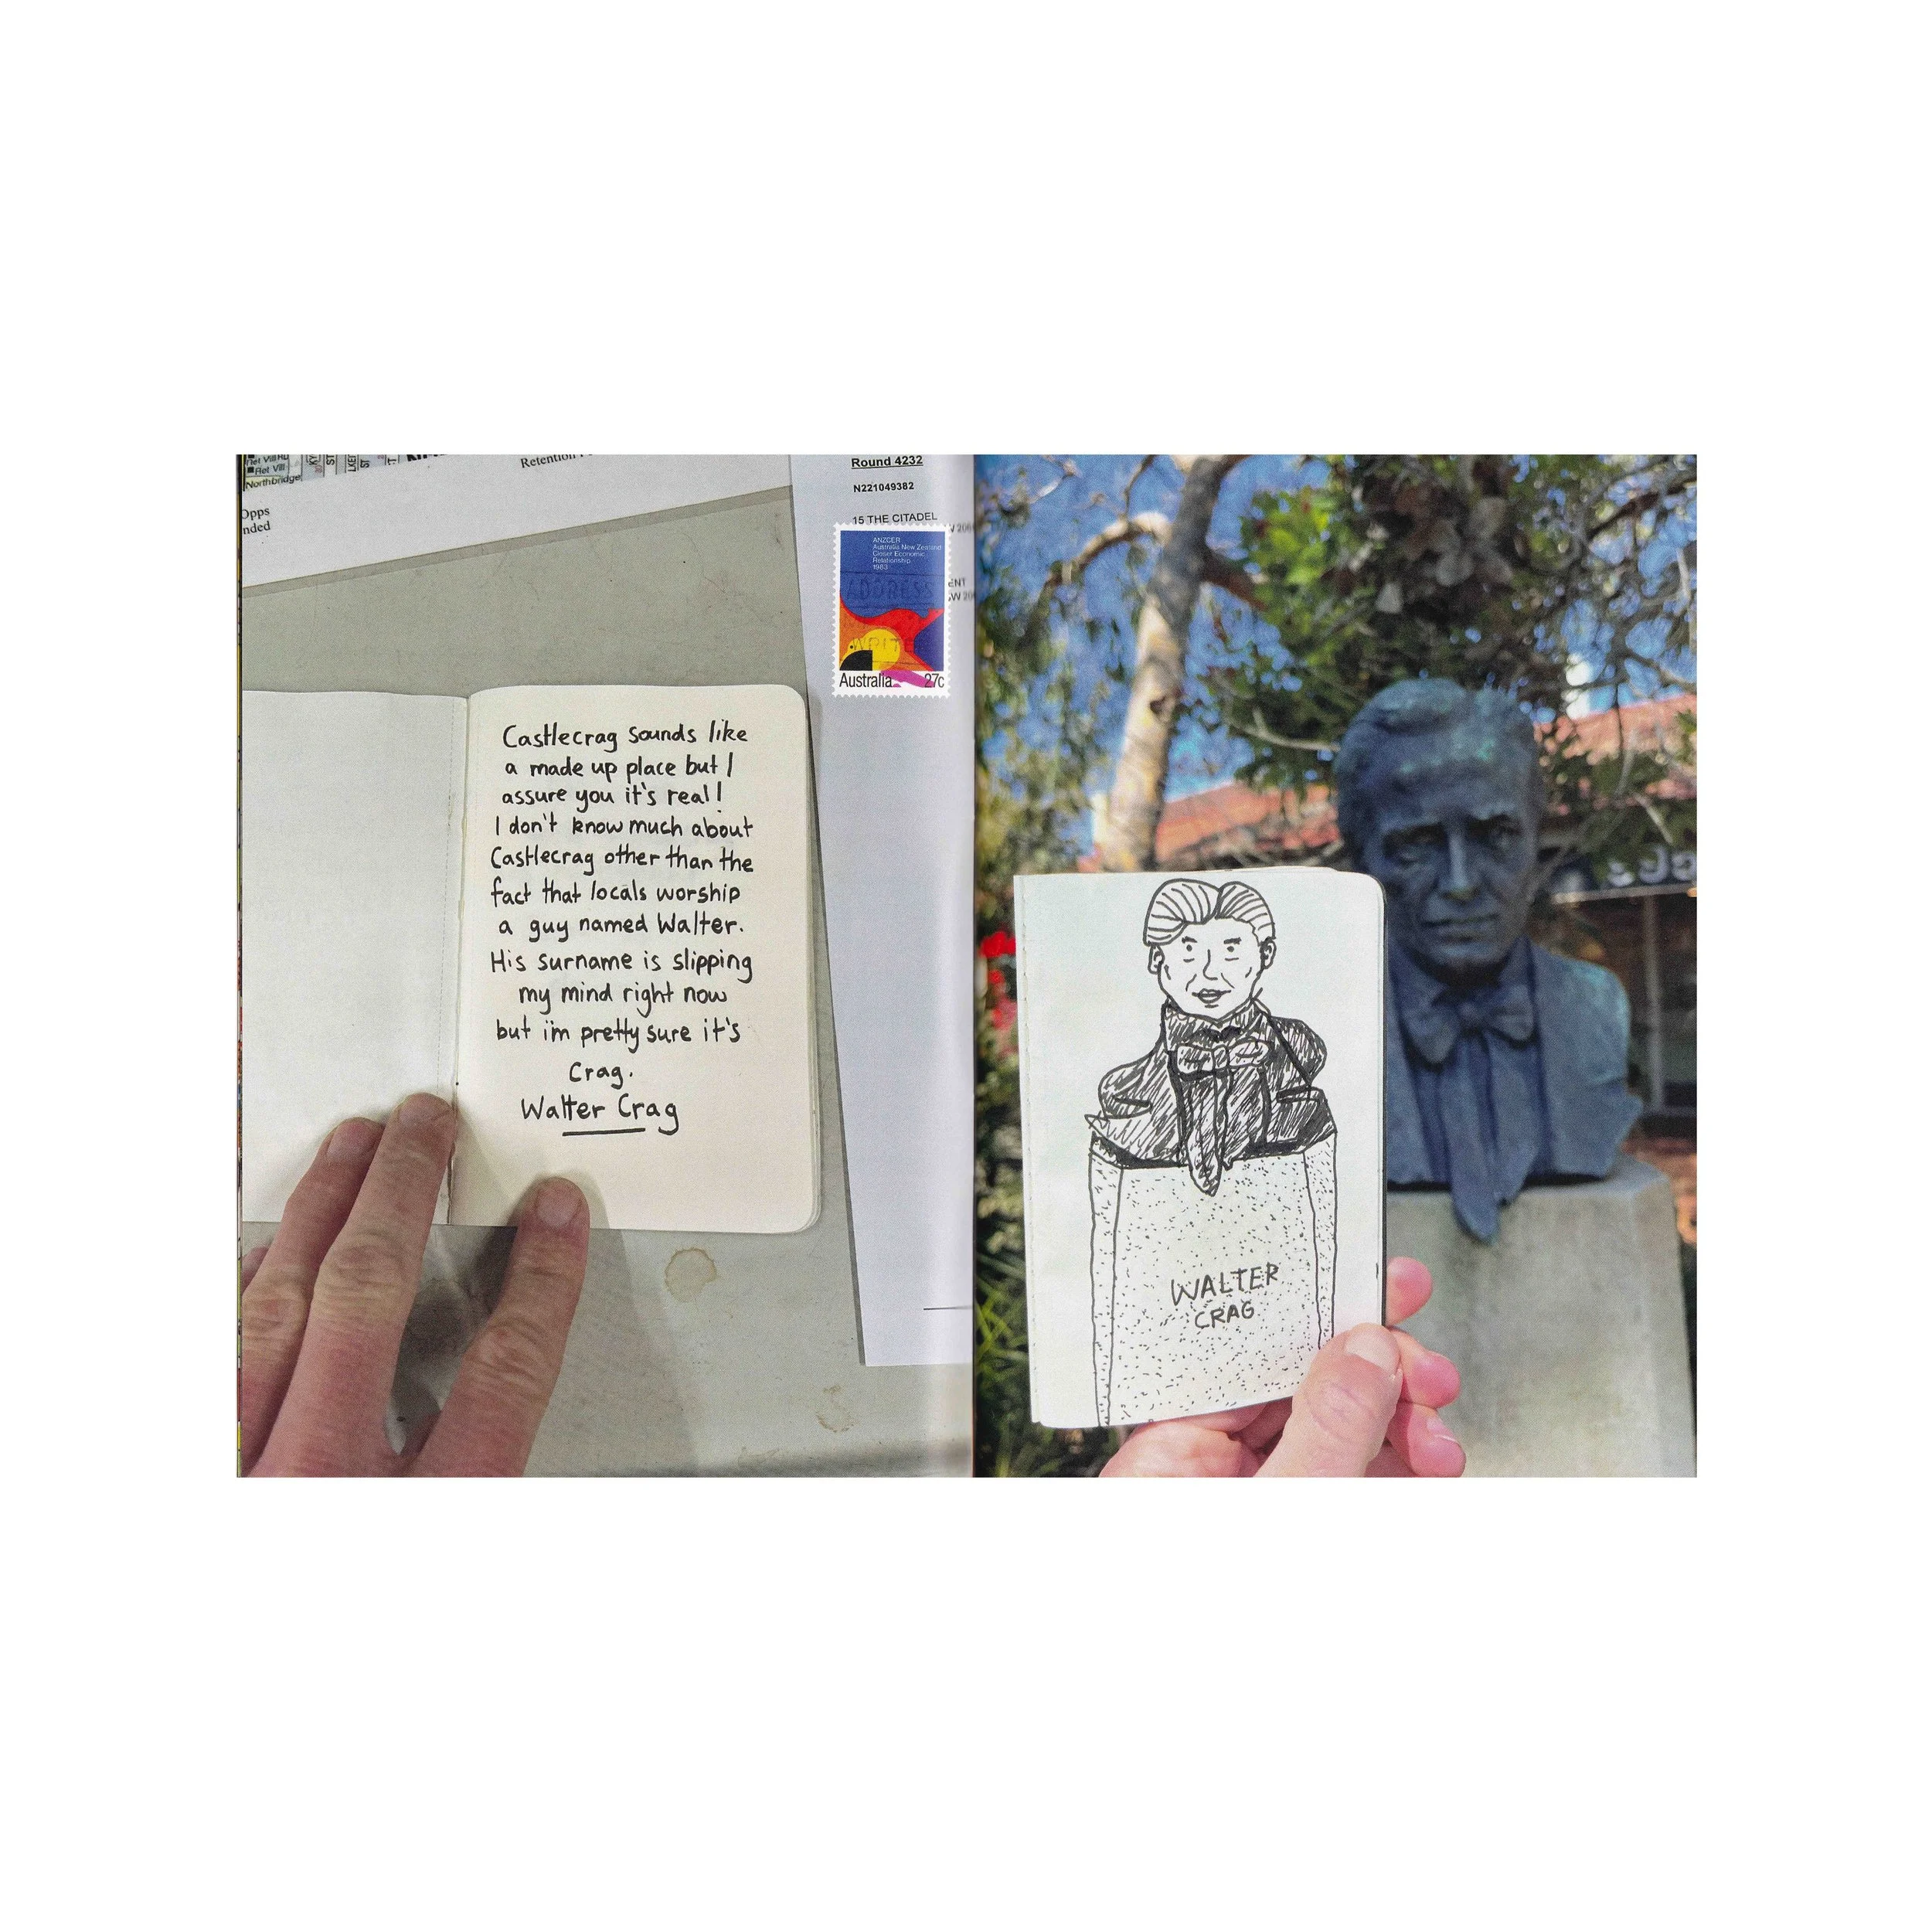 Ret Vill
Northbridge
Opps
nded
Round 4232
N221049382
15 THE CITADEL
ANZCER
Australia New Zealand
Closer Economic
Relationship
1983
ADDRESS
WRITE
Australia 27c
Castlecrag sounds like
a made up place but I
assure you it's real!
I don't know much about
Castlecrag other than the
fact that locals worship
a guy named Walter.
His surname is slipping
my mind right now
but i'm pretty sure it's
Crag.
Walter Crag
WALTER
CRAG